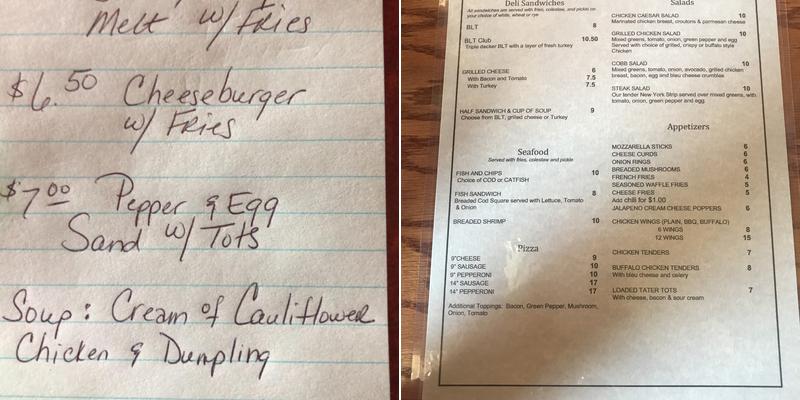 Melt w/ Fries
$6.50 Cheeseburger
w/ Fries
$7.00 Pepper & Egg
Sand w/ Tots
Soup: Cream of Cauliflower
Chicken & Dumpling
Deli Sandwiches
All sandwiches are served with fries, coleslaw, and pickle on
your choice of white, wheat or rye
BLT 8
BLT Club 10.50
Triple decker BLT with a layer of fresh turkey
GRILLED CHEESE 6
With Bacon and Tomato 7.5
With Turkey 7.5
HALF SANDWICH & CUP OF SOUP 9
Choose from BLT, grilled cheese or Turkey
Seafood
Served with fries, coleslaw and pickle
FISH AND CHIPS 10
Choice of COD or CATFISH
FISH SANDWICH 8
Breaded Cod Square served with Lettuce, Tomato
& Onion
BREADED SHRIMP 10
Pizza
9"CHEESE 9
9" SAUSAGE 10
9" PEPPERONI 10
14" SAUSAGE 17
14" PEPPERONI 17
Additional Toppings: Bacon, Green Pepper, Mushroom,
Onion, Tomato
Salads
CHICKEN CAESAR SALAD 10
Marinated chicken breast, croutons & parmesan cheese
GRILLED CHICKEN SALAD 10
Mixed greens, tomato, onion, green pepper and egg
Served with choice of grilled, crispy or buffalo style
Chicken
COBB SALAD 10
Mixed greens, tomato, onion, avocado, grilled chicken
breast, bacon, egg and bleu cheese crumbles
STEAK SALAD 10
Our tender New York Strip served over mixed greens, with
tomato, onion, green pepper and egg
Appetizers
MOZZARELLA STICKS 6
CHEESE CURDS 6
ONION RINGS 6
BREADED MUSHROOMS 6
FRENCH FRIES 4
SEASONED WAFFLE FRIES 5
CHEESE FRIES 5
Add chili for $1.00
JALAPENO CREAM CHEESE POPPERS 6
CHICKEN WINGS (PLAIN, BBQ, BUFFALO)
6 WINGS 8
12 WINGS 15
CHICKEN TENDERS 7
BUFFALO CHICKEN TENDERS 8
With bleu cheese and celery
LOADED TATER TOTS 7
With cheese, bacon & sour cream